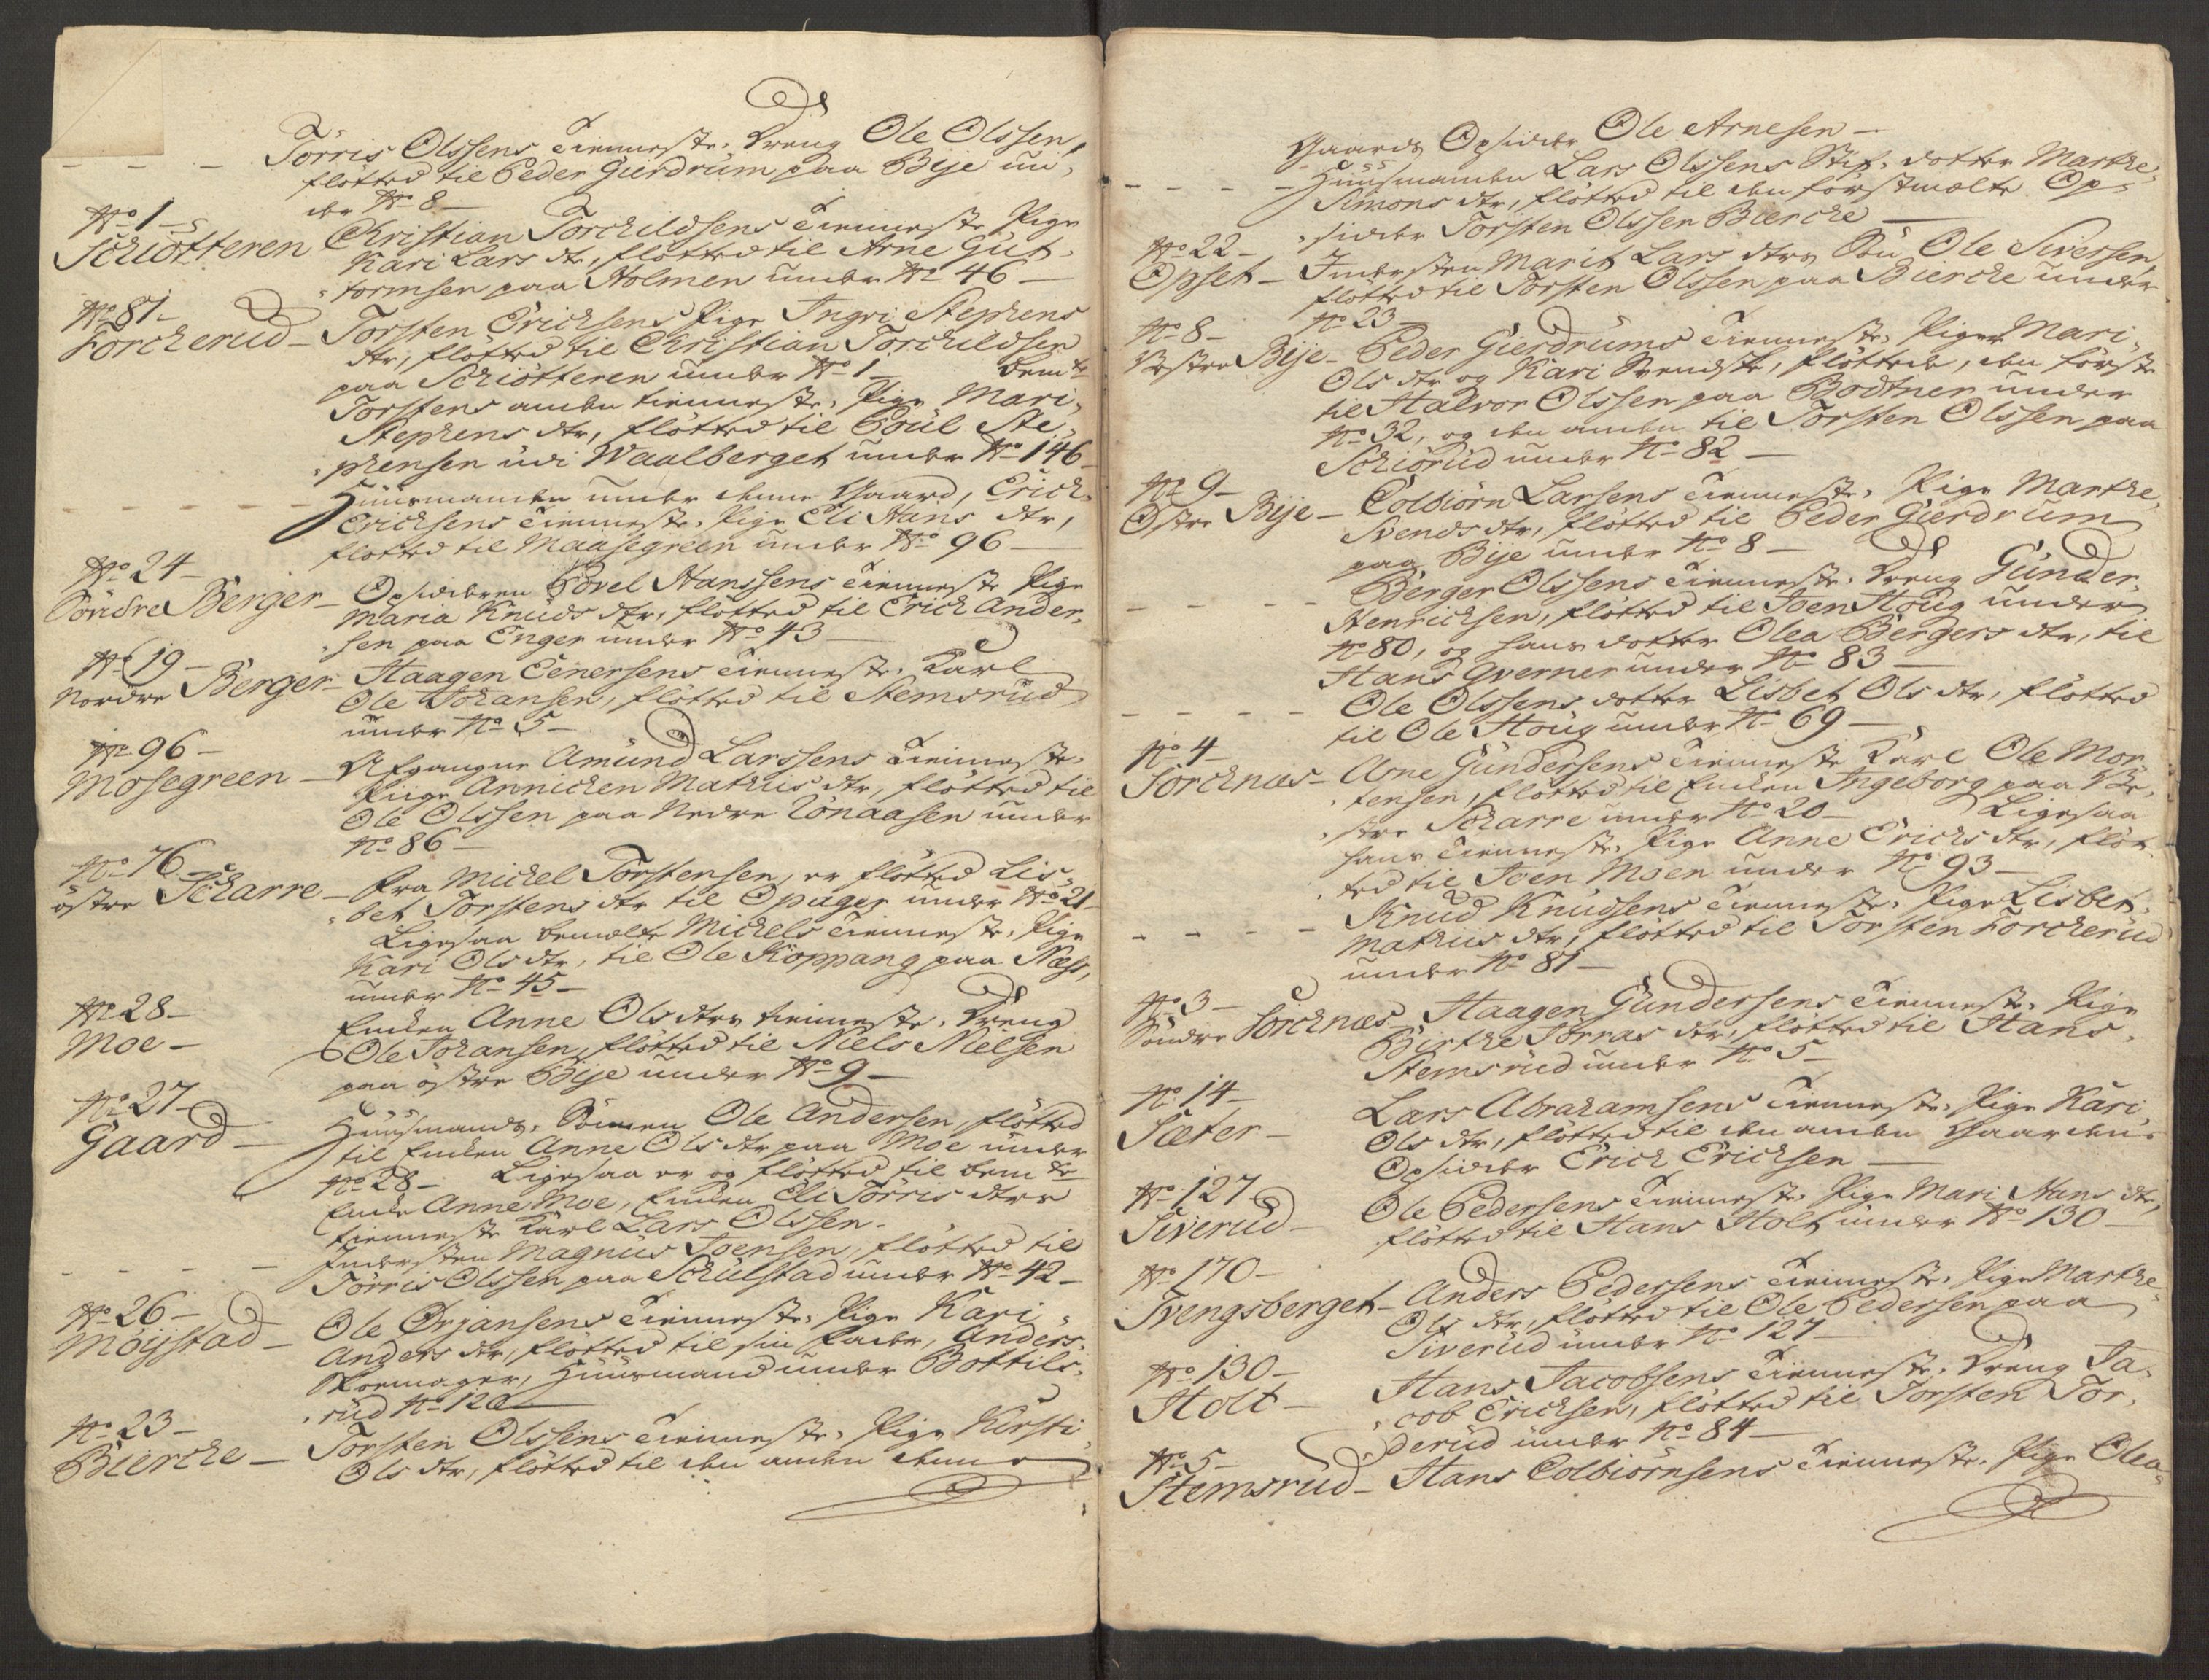 - - - Törris Olssens Tienneste, Dreng Ole Olssen,
flötted til Peder Gierdrum paa Bije un,
der No 8 —
No 1 —
Schiötteren Christian Torchildsens Tienneste Pige
Kari Lars dtr, flötted til Arne Gut,
tormsen paa Holmen under No 46 —
No 81 —
Forcherud — Torsten Erichsens Pige Ingri Stephens
dtr, flötted til Christian Torchildsen
paa Schiötteren under No 1 — bemte
Torstens anden tienneste, Pige Mari,
Stephens dtr, flötted til Poul Ste,
phensen udi Waalberget under No 146 —
- - - - - Huusmanden under denne Gaard, Erich
Erichsens Tienneste, Pige Eli Hans dtr,
flötted til Maasegreen under No 96 —
No 24 —
Söndre Berger — Opsidderen Povel Hanssens Tienneste Pige
Maria Knuds dtr, flötted til Erich Ander,
sen paa Enger under No 43 —
No 19 —
Nordre Berger — Haagen Eenersens Tienneste, Karl
Ole Johansen, flötted til Stemsrud
under No 5 —
No 96 —
Mosegreen — Afgangne Amund Larssens Tienneste,
Piige Annichen Mathis dtr, flötted til
Ole Olssen paa Nedre Rönaasen under
No 86 —
No 76 —
östre Scharre — fra Michel Torstensen, er flötted Lis,
bet Torstens dtr til Opager under No 21 —
Ligesaa bemelte Michels Tienneste, Pige
Kari Ols dtr, til Ole Koppang paa Næss,
under No 45 —
No 28 —
Moe — Enken Anne Ols dtrs tienneste, Dreng
Ole Johansen, flötted til Niels Nielsen
paa östre Bije under No 9 —
No 27 —
Gaard — Huusmands, Sönnen Ole Andersen, flötted
til Enken Anne Ols dtr paa Moe under
No 28 — Ligesaa er og flötted til bemte
Enke Anne Moe, Enken Eli Törris dtrs
tienneste Karl Lars Olssen —
- - - - Indersten Magnus Joensen, flötted til
Törris Olssen paa Schulstad under No 42 —
No 26 —
Möystad — Ole Ørjansens Tienneste, Pige Kari,
Anders dtr, flötted til sin fader, Anders
Skoemager, Huusmand under Bottils,
rud No 120 —
No 23 —
Bierche — Torsten Olssens Tienneste, Pige Kirsti,
Ols dtr, flötted til den anden denne
Gaards Opsidder Ole Arnesen —
- - - - Huusmanden Lars Olssens Stif, dotter Marthe,
Simons dtr, flötted til den förstmelte Op,
sidder Torsten Olssen Bierche —
No 22 —
Opset — Indersten Marit Lars dtrs Sön Ole Siversen,
flötted til Torsten Olssen paa Bierche under
No 23 —
No 8 —
Vestre Bije — Peder Gierdrums Tienneste, Piger Mari,
Ols dtr og Kari Svends dtr, flöttede, den förste
til Halvor Olssen paa Bodtner under
No 32, og den anden til Torsten Olssen paa
Schiörud under No 82 —
No 9 —
Östre Bije — Colbiörn Larsens Tienneste, Pige Marthe,
Svends dtr, flötted til Peder Gierdrum
paa Bije under No 8 —
- - - - Berger Olssens Tienneste, Dreng Gunder
Henrichsen, flötted til Joen Houg under
No 80, og hans dotter Olea Bergers dtr, til
Hans Qverner under No 83 —
- - - - Ole Olssens dotter Lisbet Ols dtr, flötted
til Ole Houg under No 69 —
No 4 —
Torchnæs — Arne Gundersens Tienneste Karl Ole Mor,
tensen, flötted til Enken Ingeborg paa Ve,
stre Scharre under No 20 — Ligesaa
hans Tienneste, Pige Anne Erichs dtr, flöt,
ted til Joen Moen under No 93 —
- - - - Knud Knudsens Tienneste, Pige Lisbet,
Mathis dtr, flötted til Torsten Forcherud
under No 81 —
No 3 —
Söndre Torchnæs — Haagen Gundersens Tienneste, Pige
Birthe Jörras dtr, flötted til Hans,
Stemsrud under No 5 —
No 14 —
Sæter — Lars Abrahamsens Tienneste, Pige Kari,
Ols dtr, flötted til den anden Gaardens
Opsidder Erich Erichsen —
No 127 —
Siverud — Ole Pedersens Tienneste, Pige Mari Hans dtr,
flötted til Hans Holt under No 130 —
No 170 —
Svengsberget — Anders Pedersens Tienneste, Pige Marthe,
Ols dtr, flötted til Ole Pedersen paa
Siverud under No 127 —
No 130 —
Holt — Hans Jacobsens Tienneste, Dreng Ja,
cob Erichsen, flötted til Torsten Tor,
derud under No 84 —
No 5 —
Stemsrud — Hans Colbiörnsens Tienneste, Pige Olea,